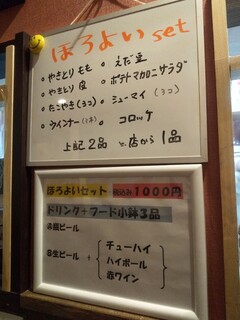 ほろよい set
・やきとり もも ・えだ豆
・やきとり 皮 ・ポテトマカロニサラダ
・たこやき(3コ) ・シューマイ (3コ)
・ウインナー ・コロッケ
上記2品 と 店から 1品
ほろよいセット 税込み1000円
ドリンク+フード小鉢3品
ビール
生ビール + チューハイ
ハイボール
赤ワイン